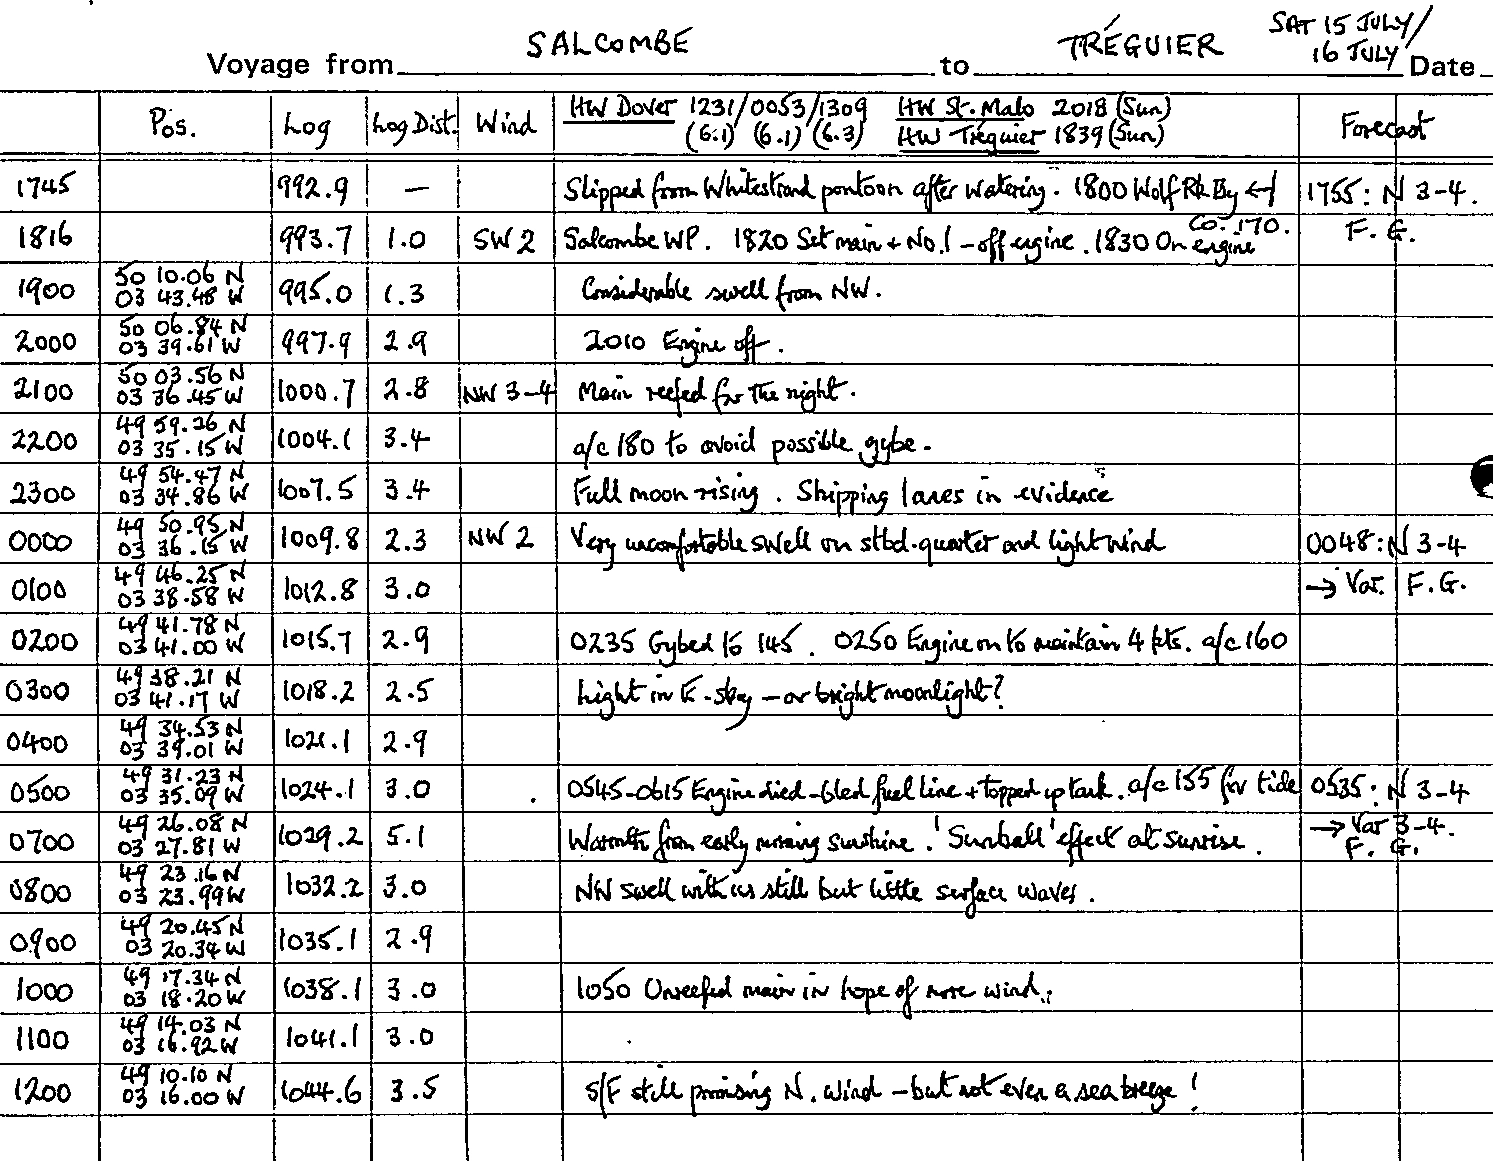 SALCOMBE TRÉGUIER SAT 15 JULY/
16 JULY
Voyage from to Date
Pos. Log Log Dist. Wind HW Dover 1231/0053/1309 HW St. Malo 2018 (Sun) Forecast
(6.1) (6.1) (6.3) HW Tréguier 1839 (Sun)
1745 992.9 — Slipped from Whitestrand pontoon after watering. 1800 Wolf Rk By 1755: N 3-4.
Co. 170.
1816 993.7 1.0 SW 2 Salcombe WP. 1820 Set main + No.1 - off engine. 1830 On engine F. G.
50 10.06 N
1900 03 43.48 W 995.0 1.3 Considerable swell from NW.
50 06.84 N
2000 03 39.61 W 997.9 2.9 2010 Engine off.
50 03.56 N
2100 03 36.45 W 1000.7 2.8 NW 3-4 Main reefed for the night.
49 59.26 N
2200 03 35.15 W 1004.1 3.4 a/c 180 to avoid possible gybe.
49 54.47 N
2300 03 34.86 W 1007.5 3.4 Full moon rising. Shipping lanes in evidence
49 50.95 N
0000 03 36.15 W 1009.8 2.3 NW 2 Very uncomfortable swell on stbd. quarter and light wind 0048: N 3-4
49 46.25 N
0100 03 38.58 W 1012.8 3.0 → Var. F.G.
49 41.78 N
0200 03 41.00 W 1015.7 2.9 0235 Gybed to 145. 0250 Engine on to maintain 4 kts. a/c 160
49 38.21 N
0300 03 41.17 W 1018.2 2.5 Light in E. sky - or bright moonlight?
49 34.53 N
0400 03 39.01 W 1021.1 2.9
49 31.23 N
0500 03 35.09 W 1024.1 3.0 0545-0615 Engine died - bled fuel line + topped up tank. a/c 155 for tide 0535: N 3-4
49 26.08 N → Var 3-4.
0700 03 27.81 W 1029.2 5.1 Warmth from early morning sunshine. 'Sunball' effect at sunrise. F. G.
49 23.16 N
0800 03 23.99 W 1032.2 3.0 NW swell with us still but little surface waves.
49 20.45 N
0900 03 20.34 W 1035.1 2.9
49 17.34 N
1000 03 18.20 W 1038.1 3.0 1050 Unreefed main in hope of more wind.
49 14.03 N
1100 03 16.92 W 1041.1 3.0
49 10.10 N
1200 03 16.00 W 1044.6 3.5 S/F still promising N. wind - but not even a sea breeze!